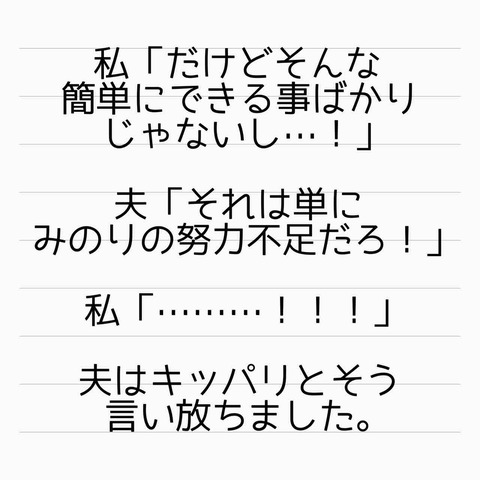 私「だけどそんな
簡単にできる事ばかり
じゃないし…！」
夫「それは単に
みのりの努力不足だろ！」
私「………！！！」
夫はキッパリとそう
言い放ちました。